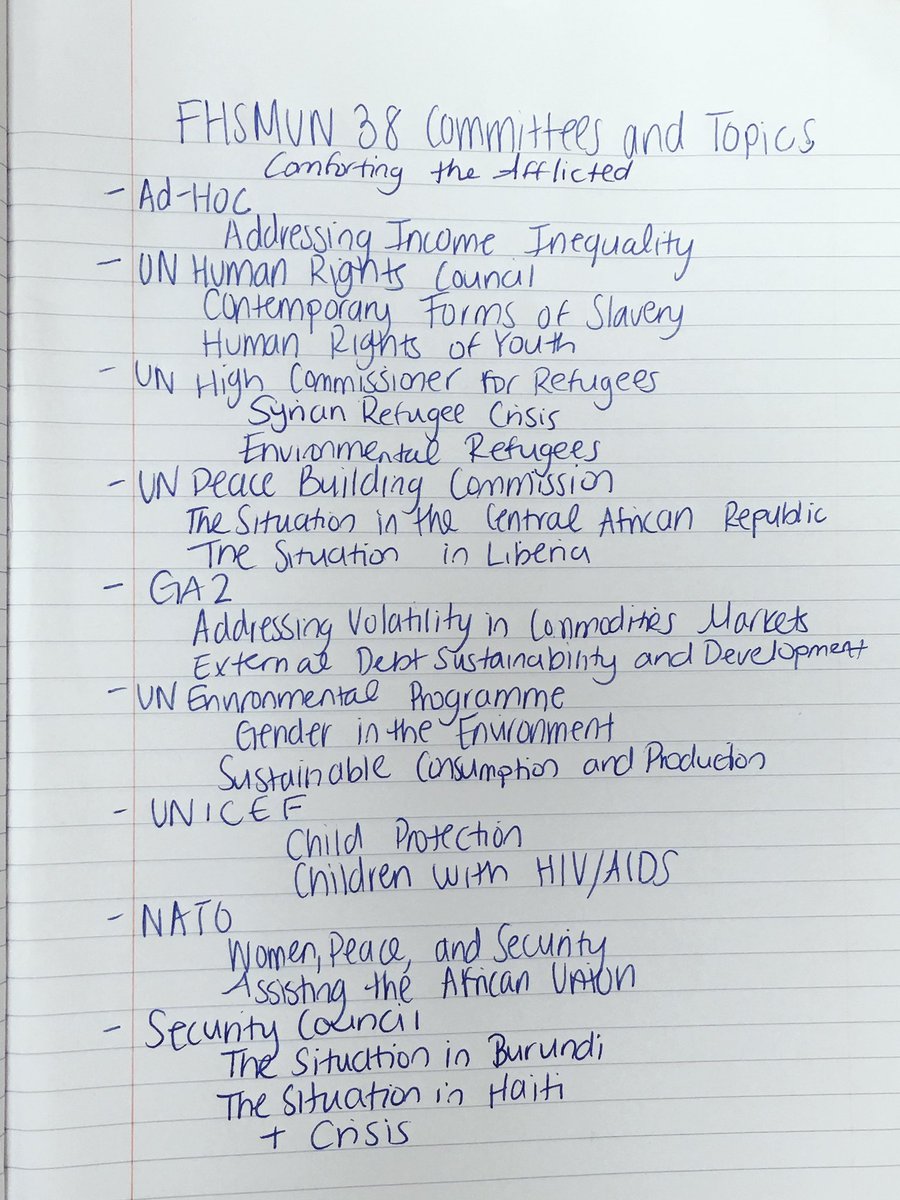 FHSMUN 38 Committees and Topics
Comforting the Afflicted
- Ad-Hoc
Addressing Income Inequality
- UN Human Rights Council
Contemporary Forms of Slavery
Human Rights of Youth
- UN High Commissioner for Refugees
Syrian Refugee Crisis
Environmental Refugees
- UN Peace Building Commission
The Situation in the Central African Republic
The Situation in Liberia
- GA2
Addressing Volatility in Commodities Markets
External Debt Sustainability and Development
- UN Environmental Programme
Gender in the Environment
Sustainable Consumption and Production
- UNICEF
Child Protection
Children with HIV/AIDS
- NATO
Women, Peace, and Security
Assisting the African Union
- Security Council
The Situation in Burundi
The Situation in Haiti
+ Crisis